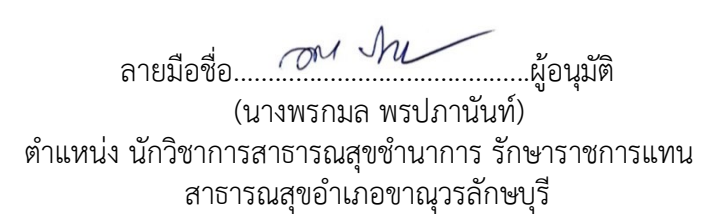 ลายมือชื่อ................................................ผู้อนุมัติ
(นางพรกมล พรปภานันท์)
ตำแหน่ง นักวิชาการสาธารณสุขชำนาการ รักษาราชการแทน
สาธารณสุขอำเภอขาณุวรลักษบุรี